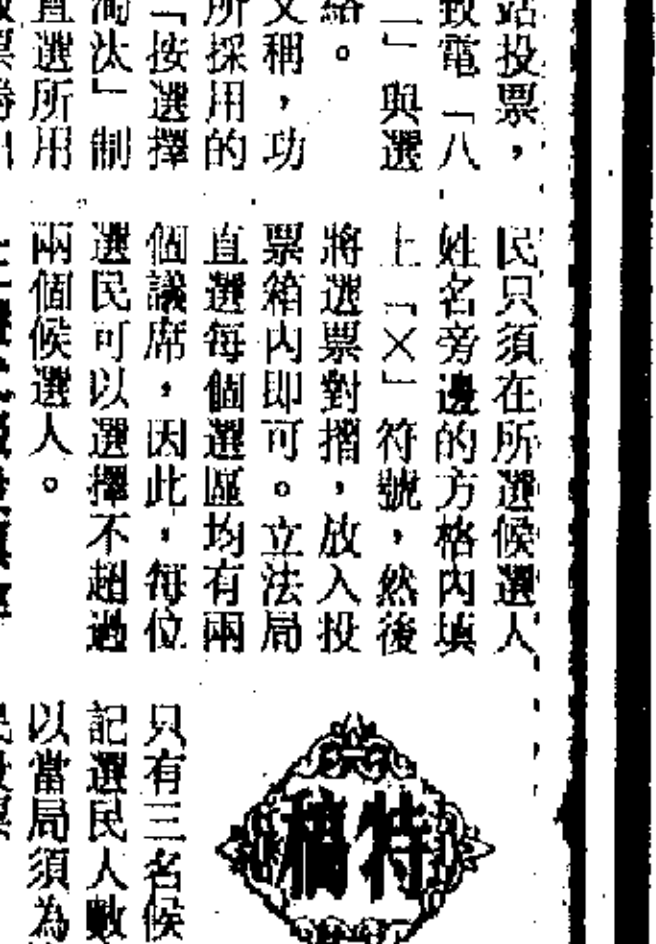 站投票，
致電「八
」與選
絡。
文稱，功
所採用的
「按選擇
淘汰」制
直選所用
民只須在所選候選人
姓名旁邊的方格內填
上「×」符號，然後
將選票對摺，放入投
票箱內即可。立法局
直選每個選區均有兩
個議席，因此，每位
選民可以選擇不超過
兩個候選人。
特稿
只有三名候
記選民人數
以當局須為